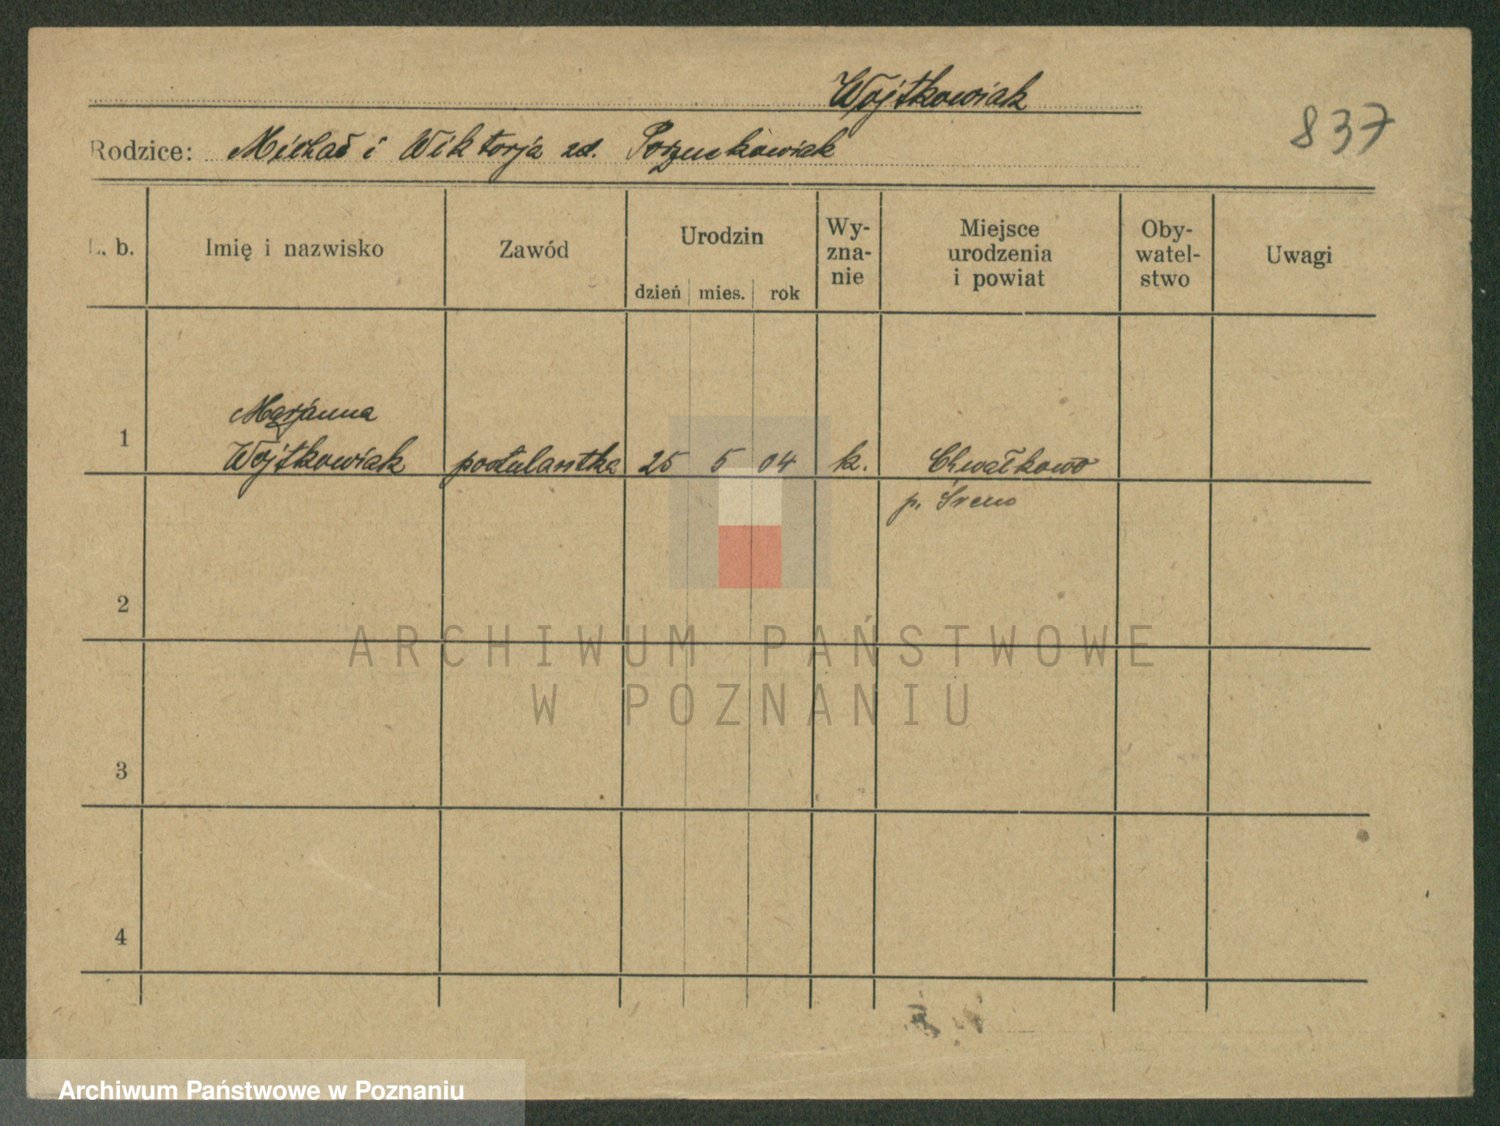 Wojtkowiak
837
Rodzice: Michał i Wiktorja zd.
L. b. Imię i nazwisko Zawód Urodzin dzień mies. rok Wy-zna-nie Miejsce urodzenia i powiat Oby-watel-stwo Uwagi
Marjanna
1 Wojtkowiak postulantka 25 5 04 k. Chwałkowo
p. Śrem
2
3
4
ARCHIWUM PAŃSTWOWE
W POZNANIU
Archiwum Państwowe w Poznaniu